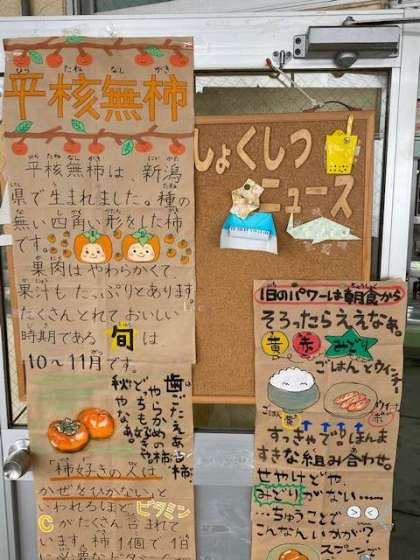 平核無柿
ひら たね なし がき
平核無柿は、新潟
県で生まれました。種の
無い四角い形をした柿
です。
果肉はやわらかくて、
果汁もたっぷりとあります。
たくさんとれておいしい
時期である旬は
10〜11月です。
歯ごたえある柿
やらかめの柿
どちも好きや
秋やなぁ。
「柿好きの人は
かぜをひかない」と
いわれるほどビタミン
Cがたくさん含まれて
います。柿1個で1日
しょくしつ
ニュース
1日のパワーは朝食から
そろったらええなぁ。
黄 赤 みどり
ごはんとウインナー
ごはん 黄
すっきゃで!!ほんま
すきな組み合わせ。
せやけどや
みどりがない……
ちゅうことで
こんなんいかが?